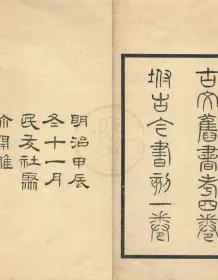 古文舊書考四卷
坿古今書刻一卷
明治甲辰
冬十一月
民友社聚